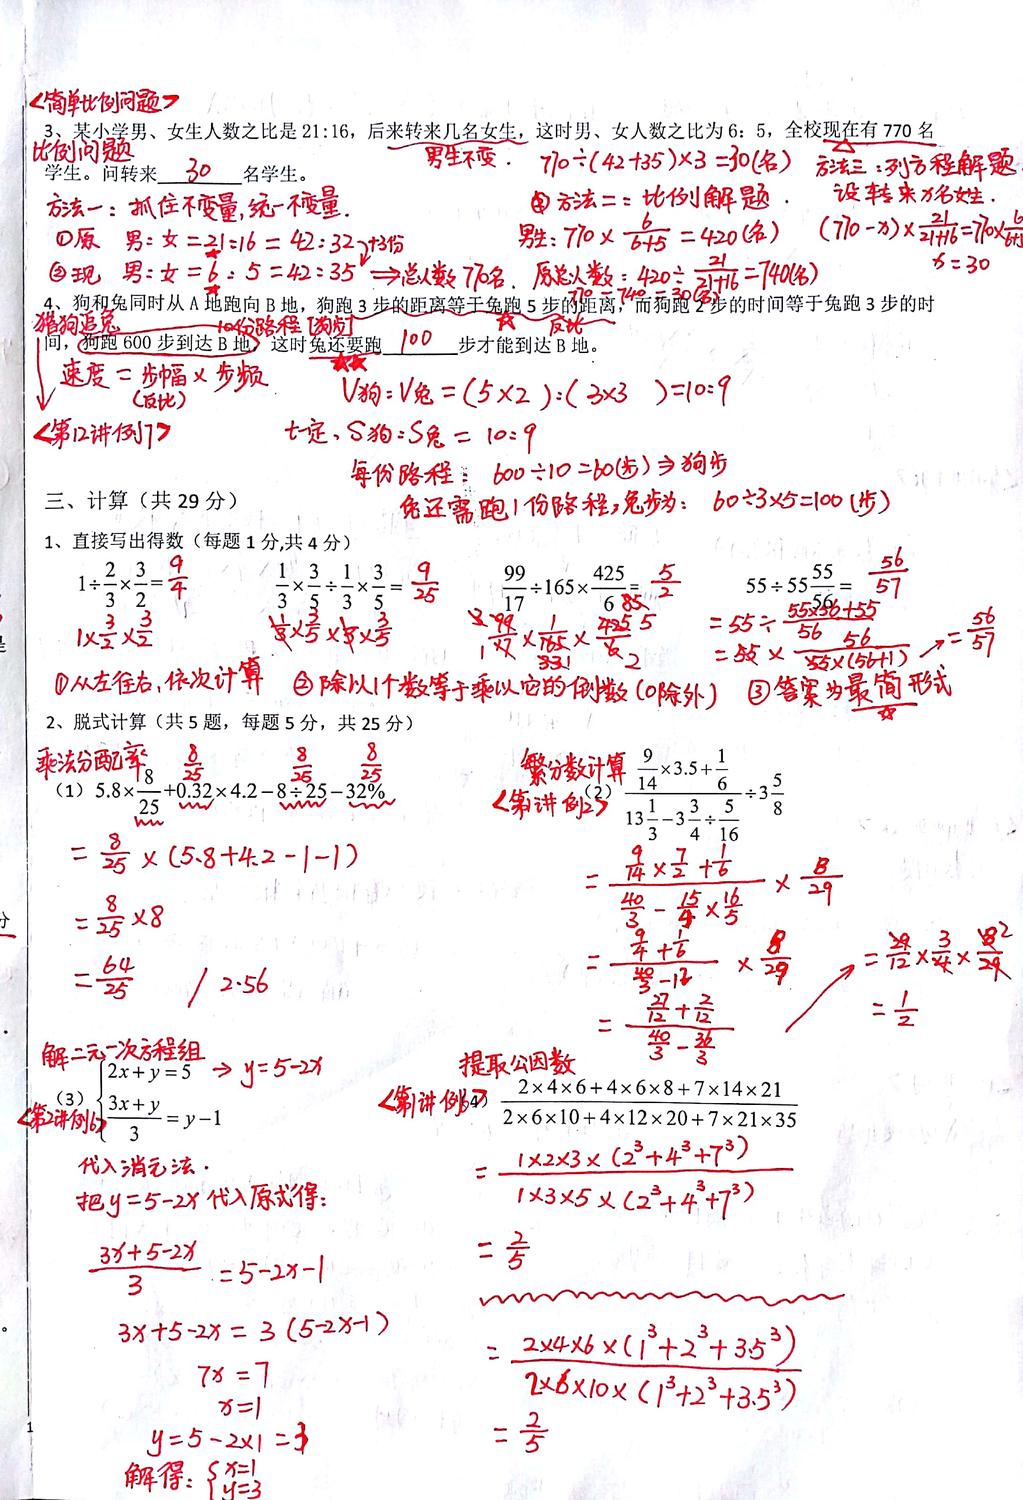 <简单比例问题>
3、某小学男、女生人数之比是 21:16，后来转来几名女生，这时男、女人数之比为 6：5，全校现在有 770 名
比例问题
男生不变. 770÷(42+35)×3=30(名) 方法三:列方程解题.
学生。问转来 30 名学生。
方法一: 抓住不变量,统一不变量. ② 方法二: 比例解题. 设转来x名女生.
①原 男:女=21:16=42:32 +3份 男生: 770×6/(6+5)=420(名) (770-x)×21/(21+16)=770×6/(6+5)
②现 男:女=6:5=42:35 ⇒总人数770名. 原总人数: 420÷21/(21+16)=740(名) x=30
770-740=30(名)
4、狗和兔同时从 A 地跑向 B 地，狗跑 3 步的距离等于兔跑 5 步的距离，而狗跑 2 步的时间等于兔跑 3 步的时
猎狗追兔 10份路程[狗] 反比
间，狗跑 600 步到达 B 地，这时兔还要跑 100 步才能到达 B 地。
速度 = 步幅 × 步频
(反比)
V狗:V兔=(5×2):(3×3 )=10:9
<第12讲例7> t一定、S狗:S兔= 10:9
每份路程: 600÷10=60(步)⇒狗步
三、计算（共 29 分）
兔还需跑1份路程,兔步为: 60÷3×5=100(步)
1、直接写出得数（每题 1 分,共 4 分）
1÷2/3×3/2=9/4 1/3×3/5÷1/3×3/5=9/25 99/17÷165×425/6=5/2 55÷55 55/56=56/57
1×3/2×3/2 1/3×3/5×1/3×3/5 99/17×1/165×425/6 =55÷(55×56+55)/56
=55×56/(55×(56+1)) =56/57
①从左往右,依次计算 ②除以1个数等于乘以它的倒数(0除外) ③答案为最简形式
2、脱式计算（共 5 题，每题 5 分，共 25 分）
乘法分配率 8/25 8/25 8/25
（1）5.8×8/25+0.32×4.2-8÷25-32%
=8/25×(5.8+4.2-1-1)
=8/25×8
=64/25 / 2.56
繁分数计算
<第1讲例2>
（2）(9/14×3.5+1/6)/(13 1/3-3 3/4÷5/16)÷3 5/8
=(9/14×7/2+1/6)/(40/3-15/4×16/5)×8/29
=(9/4+1/6)/(40/3-12)×8/29
=(27/12+2/12)/(40/3-36/3)
=29/12×3/4×8/29
=1/2
解二元一次方程组
<第2讲例6>
（3）{2x+y=5 → y=5-2x
(3x+y)/3=y-1
代入消元法.
把y=5-2x代入原式得:
(3x+5-2x)/3=5-2x-1
3x+5-2x=3(5-2x-1)
7x=7
x=1
y=5-2×1=3
解得:{x=1
y=3
提取公因数
<第1讲例6>
（4）(2×4×6+4×6×8+7×14×21)/(2×6×10+4×12×20+7×21×35)
=1×2×3×(2³+4³+7³)/1×3×5×(2³+4³+7³)
=2/5
=2×4×6×(1³+2³+3.5³)/2×6×10×(1³+2³+3.5³)
=2/5
1